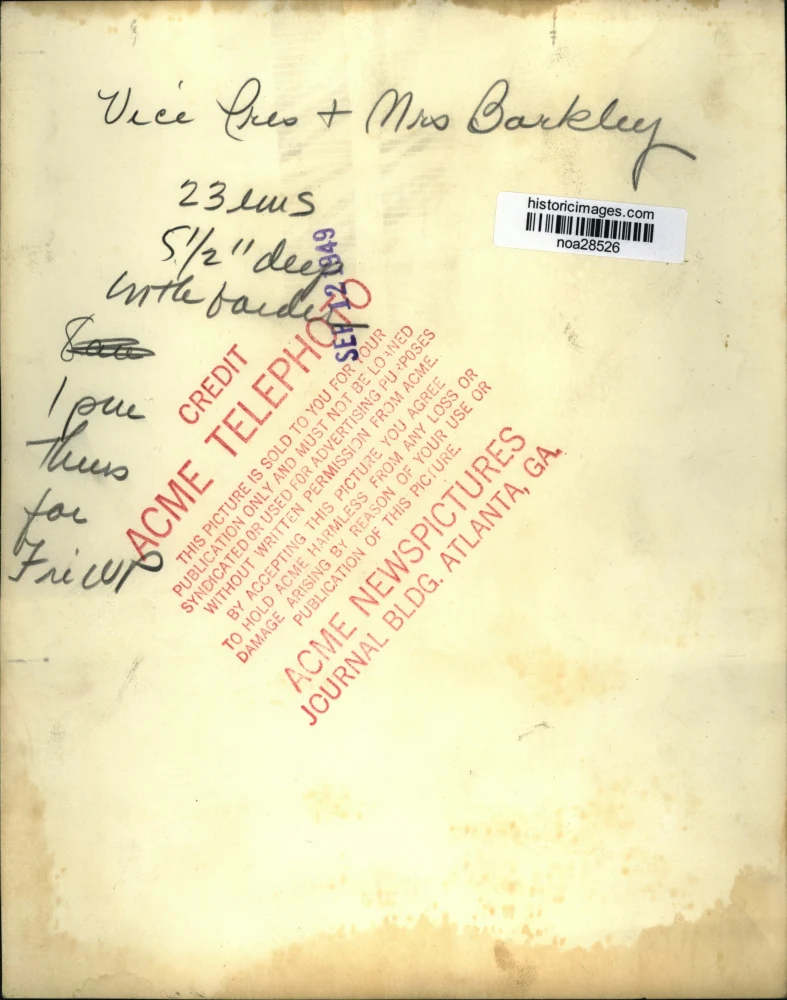 Vice Pres + Mrs Barkley
23 ems
5 1/2" deep
with border
1 pm
Thurs
for
Fri WP
historicimages.com
noa28526
SEP 12 1949
CREDIT
ACME TELEPHOTO
THIS PICTURE IS SOLD TO YOU FOR YOUR
PUBLICATION ONLY AND MUST NOT BE LOANED
SYNDICATED OR USED FOR ADVERTISING PURPOSES
WITHOUT WRITTEN PERMISSION FROM ACME.
BY ACCEPTING THIS PICTURE YOU AGREE
TO HOLD ACME HARMLESS FROM ANY LOSS OR
DAMAGE ARISING BY REASON OF YOUR USE OR
PUBLICATION OF THIS PICTURE.
ACME NEWSPICTURES
JOURNAL BLDG. ATLANTA, GA.